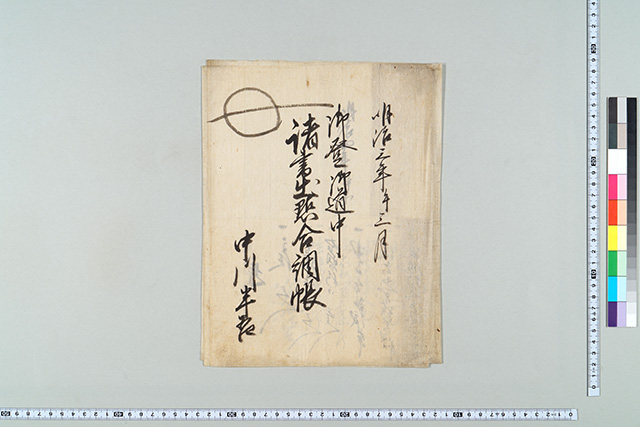 明治三年午三月
御登御道中
諸書出証合調帳
中川半吾